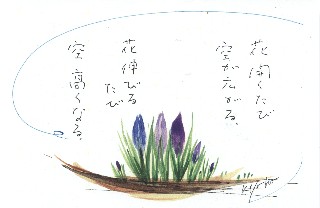 花開くたび
空が広がる、
花伸びる
たび
空高くなる、